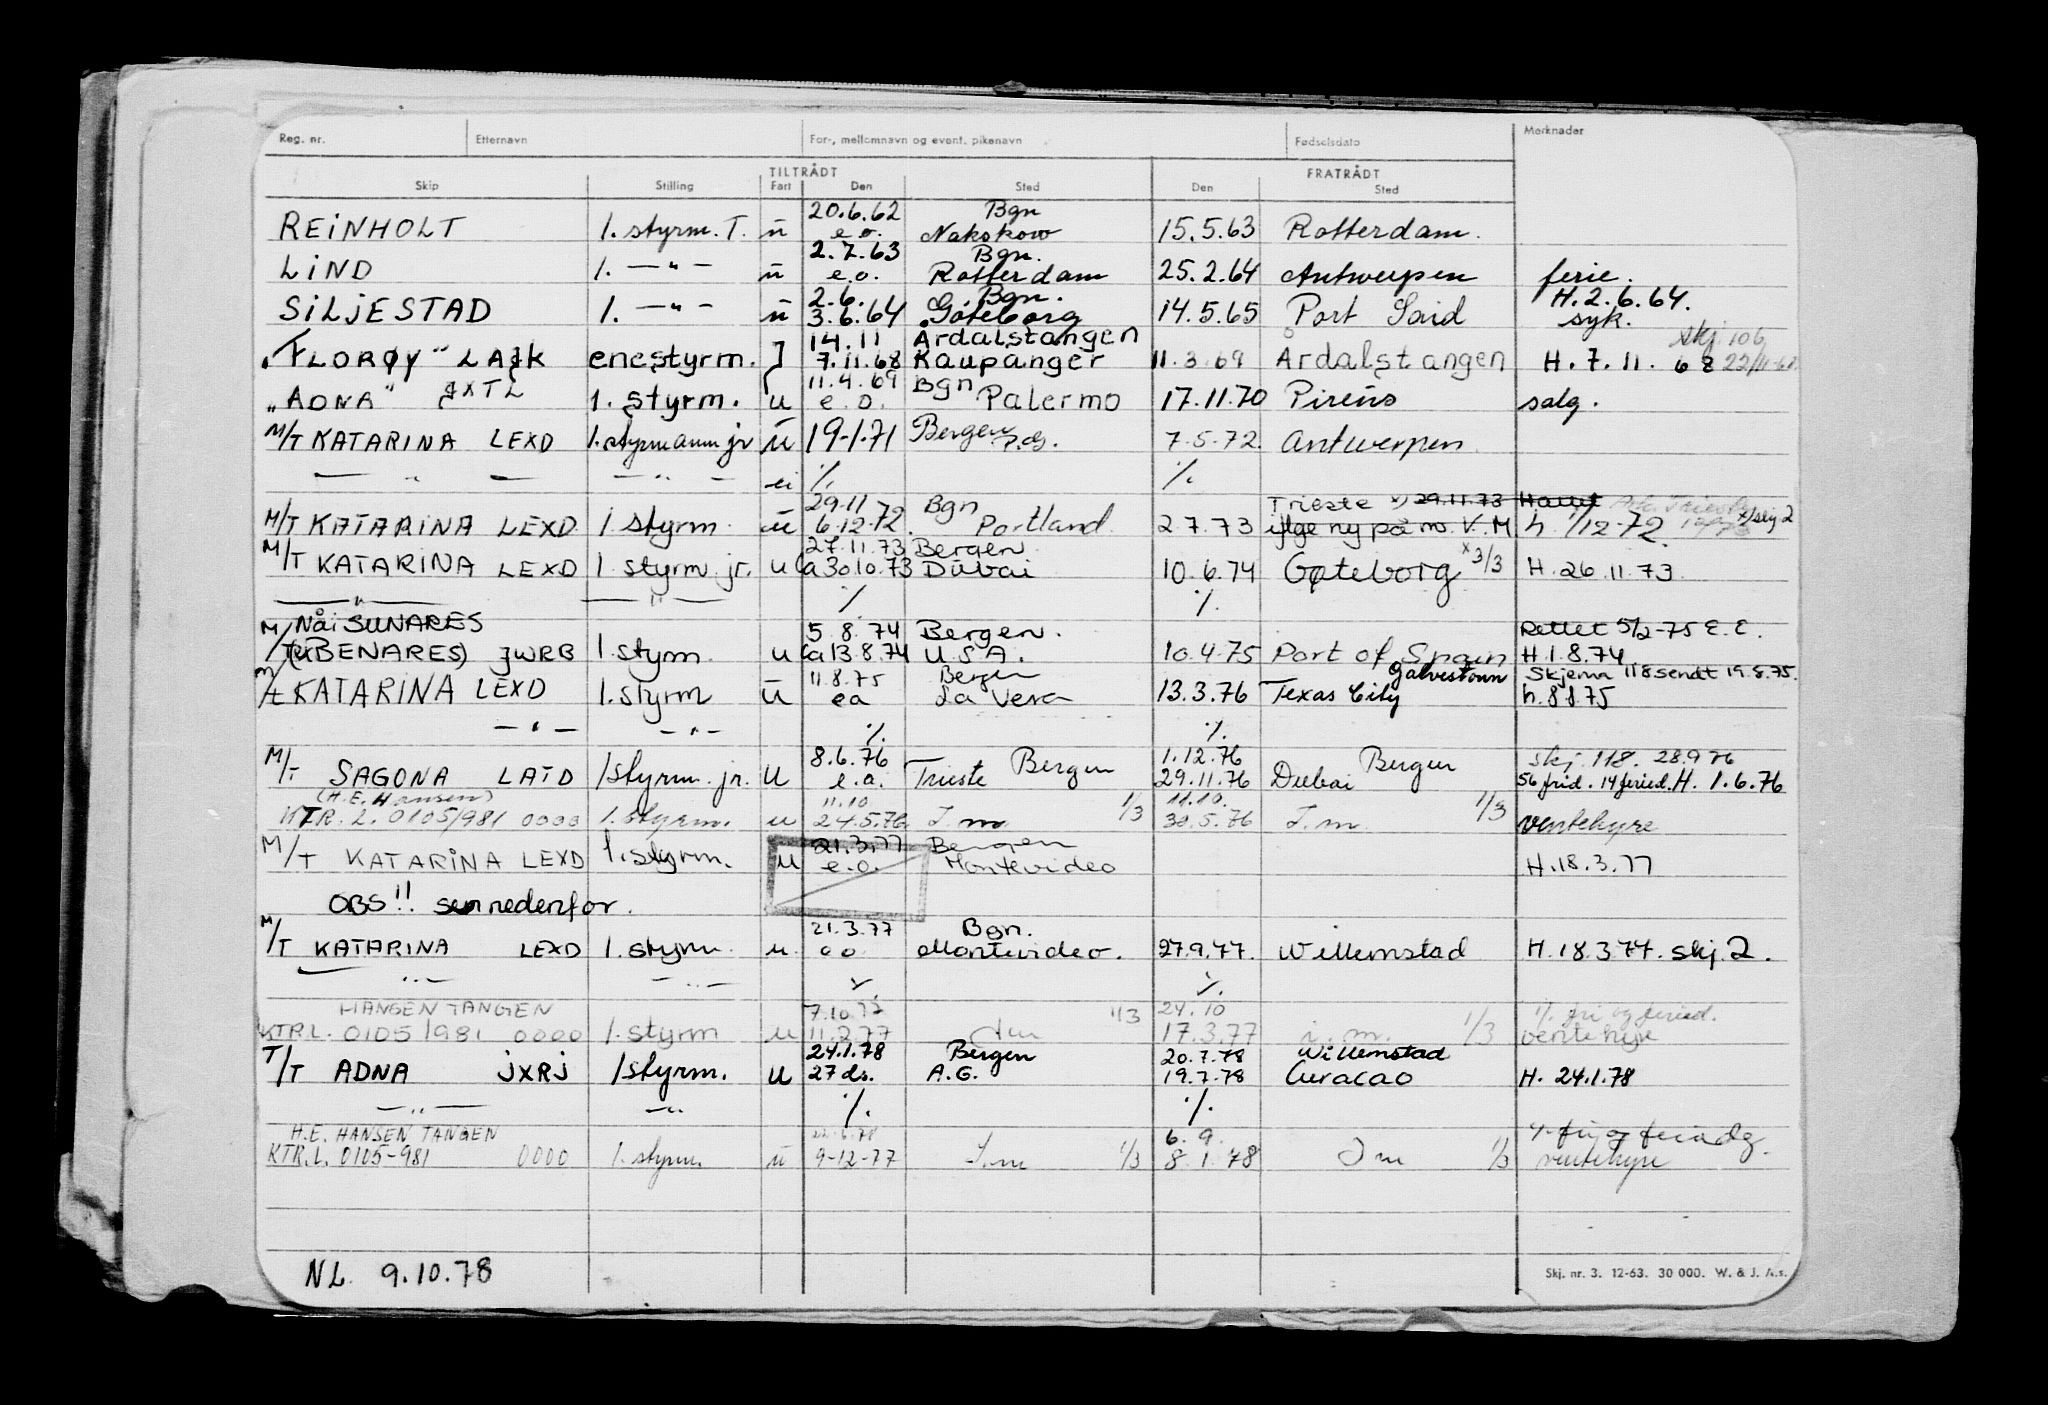 Reg. nr. Etternavn For-, mellomnavn og event. pikenavn Fødselsdato Merknader
TILTRÅDT FRATRÅDT
Skip Stilling Fart Den Sted Den Sted
20.6.62 Bgn
REINHOLT 1. styrm. T. u e.o. Nakskow 15.5.63 Rotterdam.
2.7.63 Bgn.
LIND 1. —"— u e.o. Rotterdam 25.2.64 Antwerpen ferie.
2.6. Bgn. H.2.6.64.
SILJESTAD 1. —"— u 3.6.64 Gøteborg 14.5.65 Port Said syk.
14.11 Årdalstangen skj 106
"FLORØY" LAJK enestyrm. 7.11.68 Kaupanger 11.3.69 Årdalstangen H. 7. 11. 68 22/11-68
11.4.69 Bgn
"ADNA" JXTL 1. styrm. u e.o. Palermo 17.11.70 Pireus salg.
M/T KATARINA LEXD 1. styrmann jr u 19-1.71 Bergen P.G. 7.5.72. Antwerpen
— " — — " — u ./. ./.
29.11 Bgn Trieste x) 29.11.73
M/T KATARINA LEXD 1. styrm. u 6.12.72. Portland 2.7.73 ifge ny på m. V. M h. 1/12-72. x/skj 2
27.11.73 Bergen x 3/3
M/T KATARINA LEXD 1. styrm. jr. u Ca 30.10.73 Dubai 10.6.74 Gøteborg H. 26.11.73.
— " — — " — ./. ./.
Nåi SUNARES 5.8.74 Bergen. Rettet 5/2-75 E.E.
M/T (BENARES) JWRB 1. styrm. u Ca 13.8.74 U.S.A. 10.4.75 Port of Spain H.1.8.74
11.8.75 Bergen Galvestown Skjema 118 sendt 19.8.75.
M/t KATARINA LEXD 1. styrm u ea La Vera 13.3.76 Texas City h. 8.8.75
— " — — " — ./. ./.
8.6.76 Bergen 1.12.76 Bergen skj. 118. 28.9.76
M/T SAGONA LATD 1styrm. jr. u e.a. Trieste 29.11.76 Dubai 56 frid. 14 feried. H. 1.6.76
(H.E. Hansen) 11.10 1/3 11.10. 1/3
KTR. L. 0105/981 0000 1. styrm. u 24.5.76. I.m 30.5.76 I.m ventehyre
21.3.77 Bergen
M/T KATARINA LEXD 1. styrm. u e.o. Montevideo H.18.3.77
OBS!! sen nedenfor.
21.3.77 Bgn.
M/T KATARINA LEXD 1. styrm. u. e o Montevideo. 27.9.77. Willemstad H. 18.3.77. skj. 2.
— " — — " — ./. ./.
HANSEN TANGEN 7.10.77 1/3 24.10 1/3 ./. fri og feried.
KTR.L. 0105/981 0000 1. styrm u 11.2.77 17.3.77 i. m. ventehyre
24.1.78 Bergen 20.7.78 Willemstad
T/T ADNA JXRJ 1styrm. u 27 ds. A.G. 19.7.78 Curacao H. 24.1.78
— " — — " — ./. ./.
H.E. HANSEN TANGEN 22.6.78 6. 9. ./. fri og feriedg.
KTR.L. 0105-981 0000 1. styrm. u 9-12-77 I.m 1/3 8.1.78 I m 1/3 ventehyre
NL. 9.10.78
Skj. nr. 3. 12-63. 30 000. W. & J. A.s.